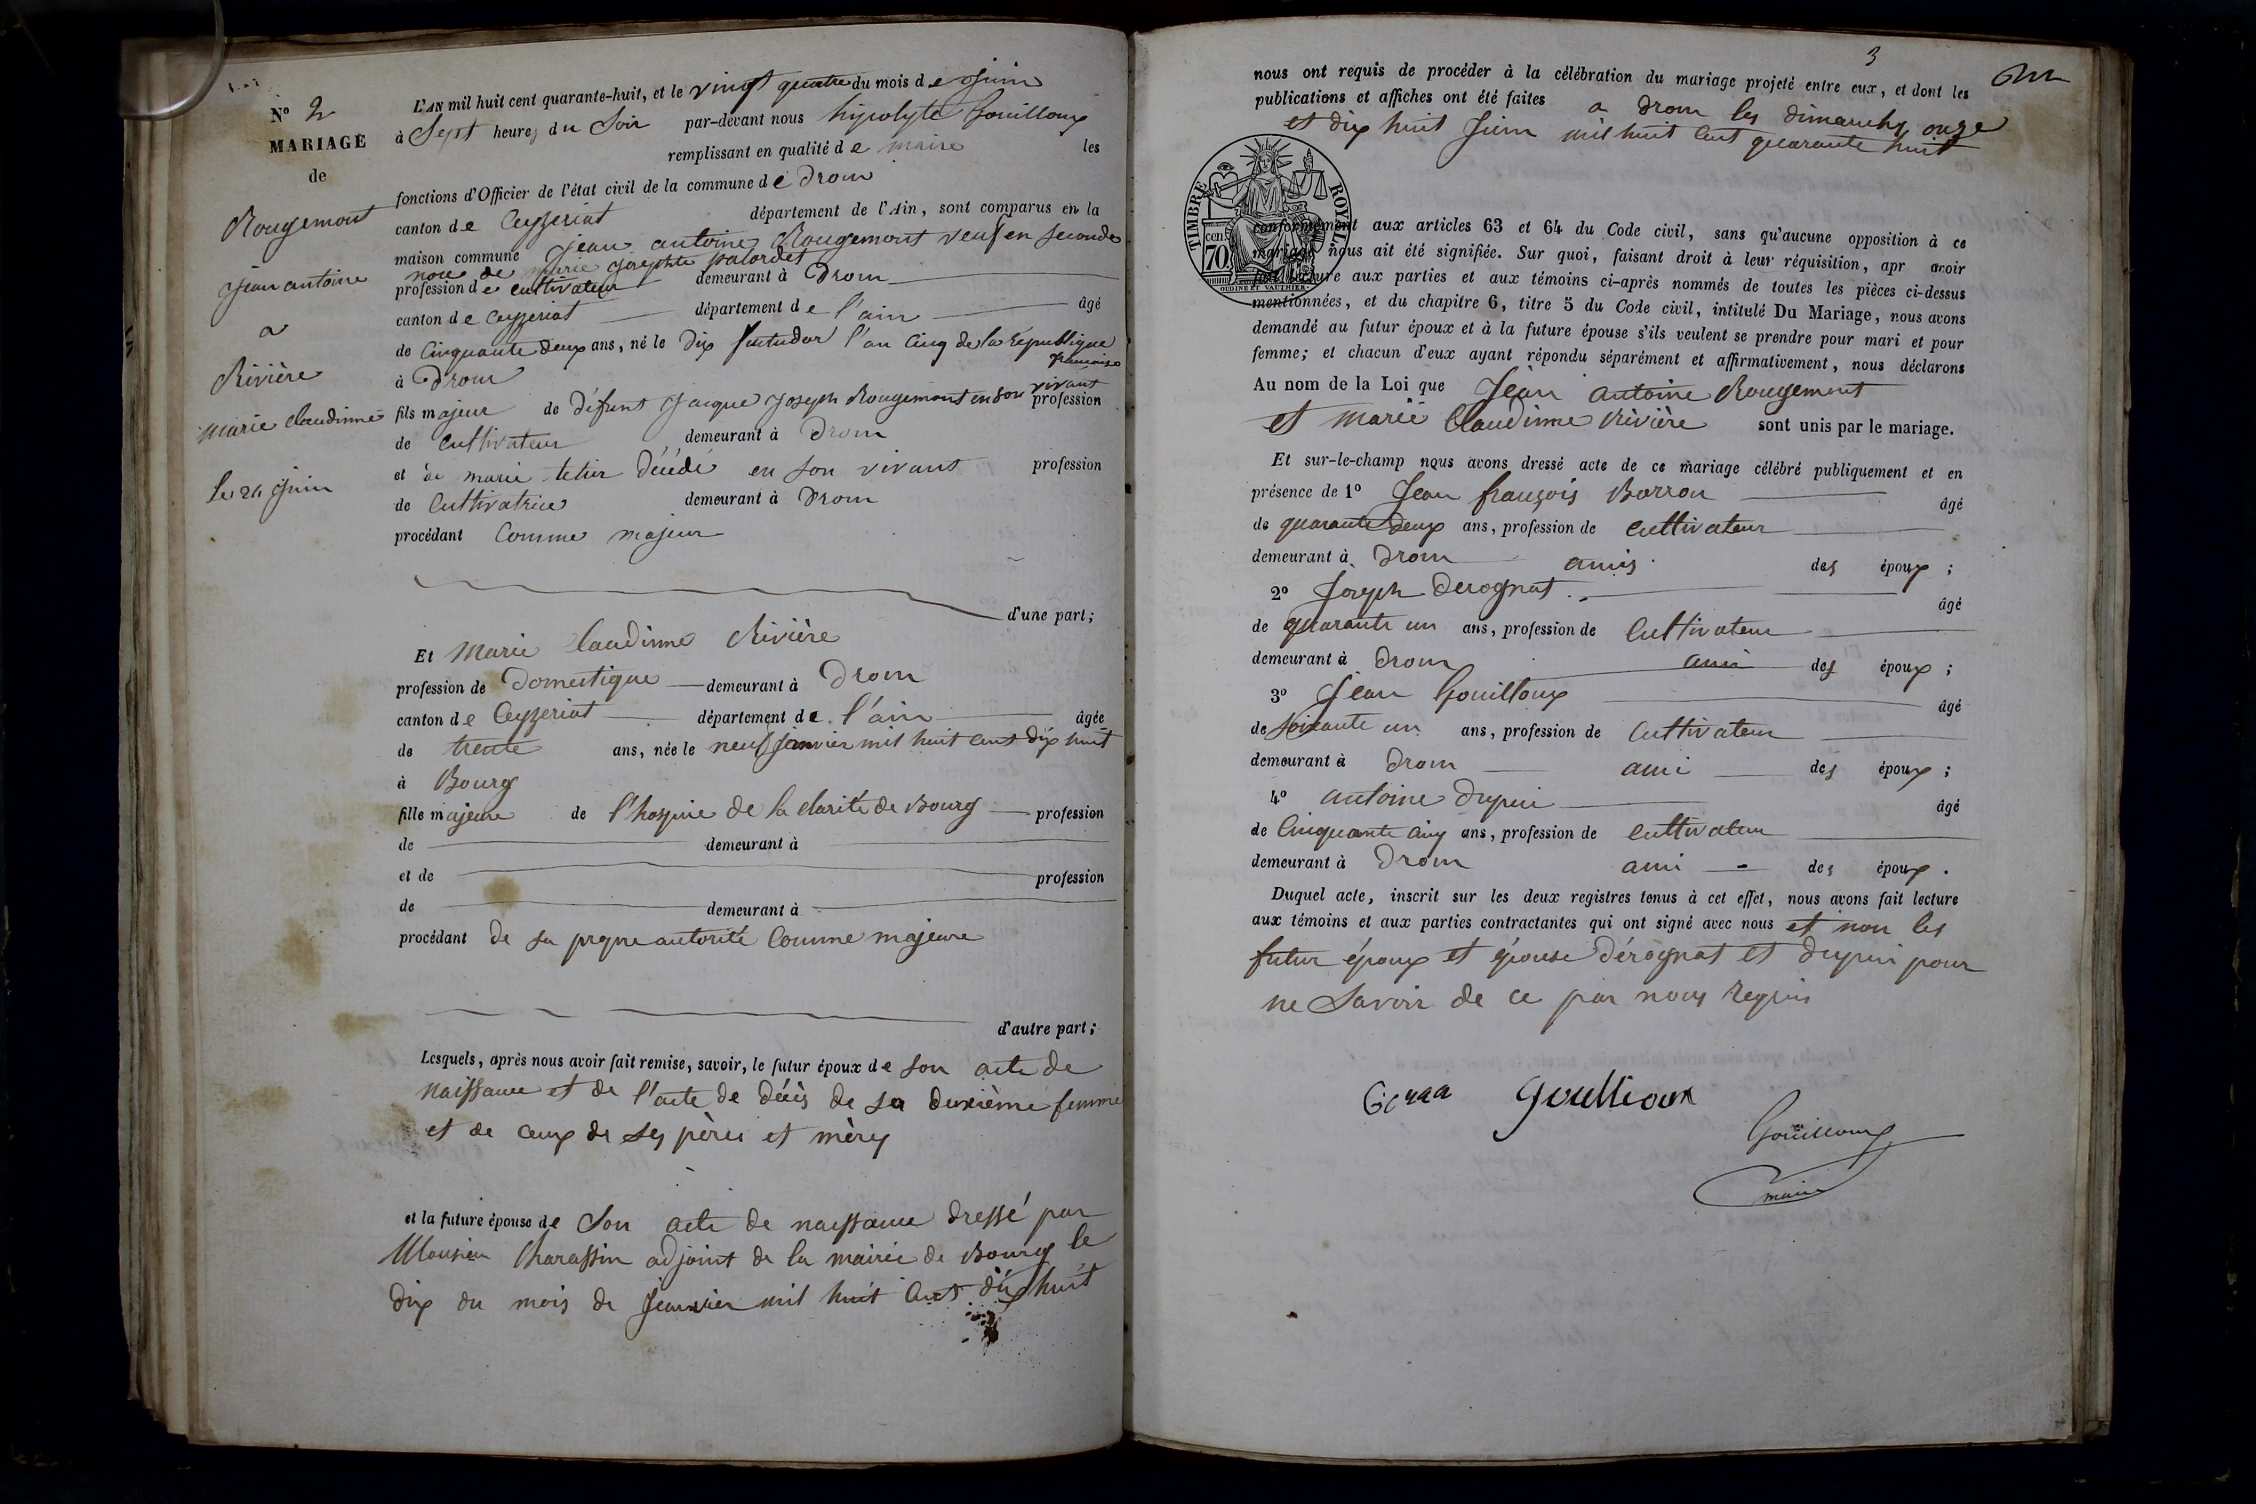 N° 2
MARIAGE
de
Rougemont
Jean antoine
a
Rivière
marie claudinne
le 24 Juin
L'AN mil huit cent quarante-huit, et le vingt quatre du mois de Juin
à Sept heures du Soir par-devant nous hipolyte Gouilloux
remplissant en qualité de maire les
fonctions d'Officier de l'état civil de la commune de Drom
canton de Ceyzeriat département de l'Ain, sont comparus en la
maison commune Jean antoine Rougemont veuf en seconde
noce de marie josephte palordet
profession de cultivateur demeurant à Drom
canton de Ceyzeriat département de l'ain âgé
de Cinquante deux ans, né le Dix fructudor l'an cinq de la république
française
à Drom
fils majeur de défunt Jacque Joseph Rougemont en son vivant profession
de cultivateur demeurant à Drom
et de marie tetur Décédé en son vivant profession
de Cultivatrice demeurant à Drom
procédant Comme majeur
d'une part;
Et Marie Claudinne Rivière
profession de Domestique demeurant à Drom
canton de Ceyzeriat département de l'ain âgée
de trente ans, née le neuf Janvier mil huit cent dix huit
à Bourg
fille majeure de l'hospice de la clarité de Bourg profession
de demeurant à
et de profession
de demeurant à
procédant de sa propre autorité Comme majeure
d'autre part;
Lesquels, après nous avoir fait remise, savoir, le futur époux de son acte de
naissance et de l'acte de décès de sa deuxième femme
et de ceux de ses pères et mères
et la future épouse de Son acte de naissance dressé par
Monsieur Charassin adjoint de la mairie de Bourg le
dix du mois de Jeanvier mil huit cent dix huit
3
nous ont requis de procéder à la célébration du mariage projeté entre eux, et dont les
publications et affiches ont été faites a Drom les dimanches onze
et dix huit Juin mil huit cent quarante huit
TIMBRE ROYAL
70 cen.
OUDINE ET VAUTHIER
conformément aux articles 63 et 64 du Code civil, sans qu'aucune opposition à ce
mariage nous ait été signifiée. Sur quoi, faisant droit à leur réquisition, apr avoir
fait lecture aux parties et aux témoins ci-après nommés de toutes les pièces ci-dessus
mentionnées, et du chapitre 6, titre 5 du Code civil, intitulé Du Mariage, nous avons
demandé au futur époux et à la future épouse s'ils veulent se prendre pour mari et pour
femme; et chacun d'eux ayant répondu séparément et affirmativement, nous déclarons
Au nom de la Loi que Jean antoine Rougemont
et marie Claudinne Rivière sont unis par le mariage.
Et sur-le-champ nous avons dressé acte de ce mariage célébré publiquement et en
présence de 1° Jean françois Borron âgé
de quarante deux ans, profession de cultivateur
demeurant à Drom amis des époux;
2° Joseph Derognat âgé
de quarante un ans, profession de Cultivateur
demeurant à Drom ami des époux;
3° Jean Gouilloux âgé
de Soixante un ans, profession de Cultivateur
demeurant à Drom ami des époux;
4° antoine dupui âgé
de Cinquante cinq ans, profession de cultivateur
demeurant à Drom ami des époux.
Duquel acte, inscrit sur les deux registres tenus à cet effet, nous avons fait lecture
aux témoins et aux parties contractantes qui ont signé avec nous et non les
futur époux et épouse dérognat et dupui pour
ne Savoir de ce par nous requis
Goullioux
Gouilloux
maire